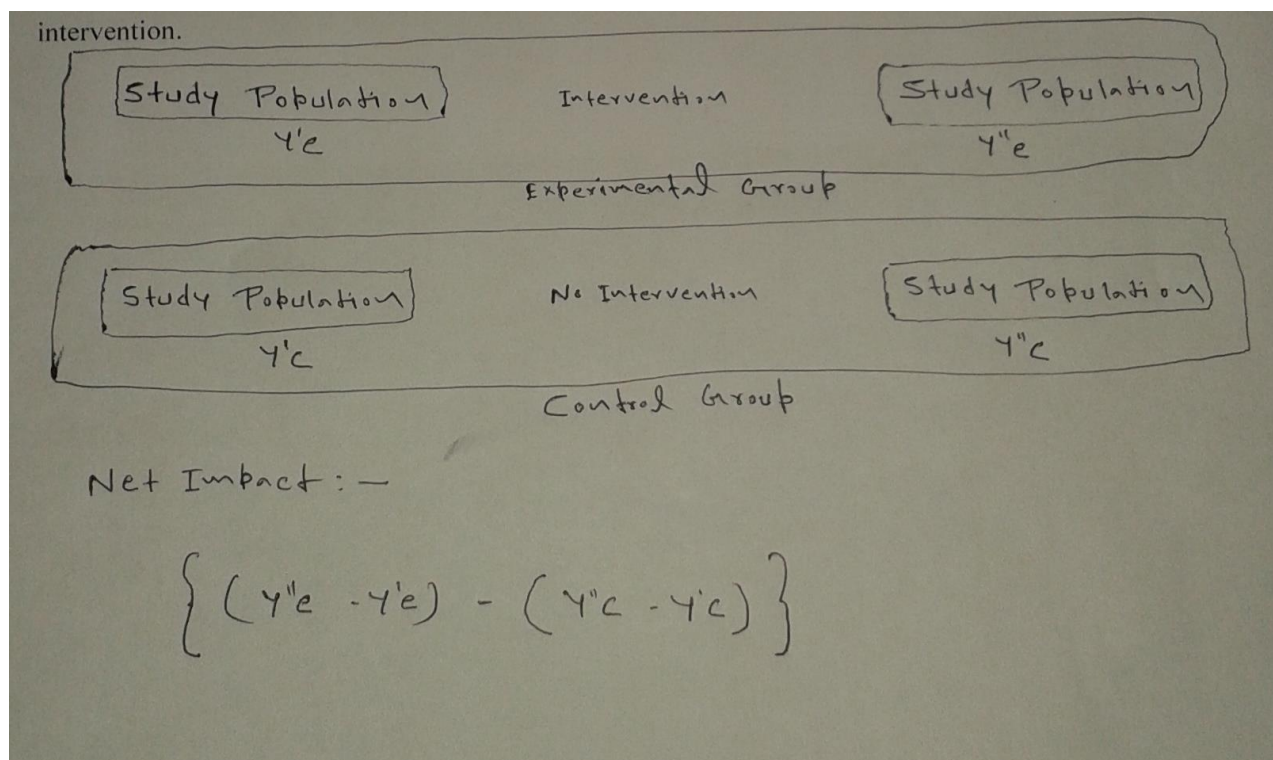 intervention.
Study Population Intervention Study Population
Y'e Y"e
Experimental Group
Study Population No Intervention Study Population
Y'c Y"c
Control Group
Net Impact : —
{(Y"e - Y'e) - (Y"c - Y'c)}